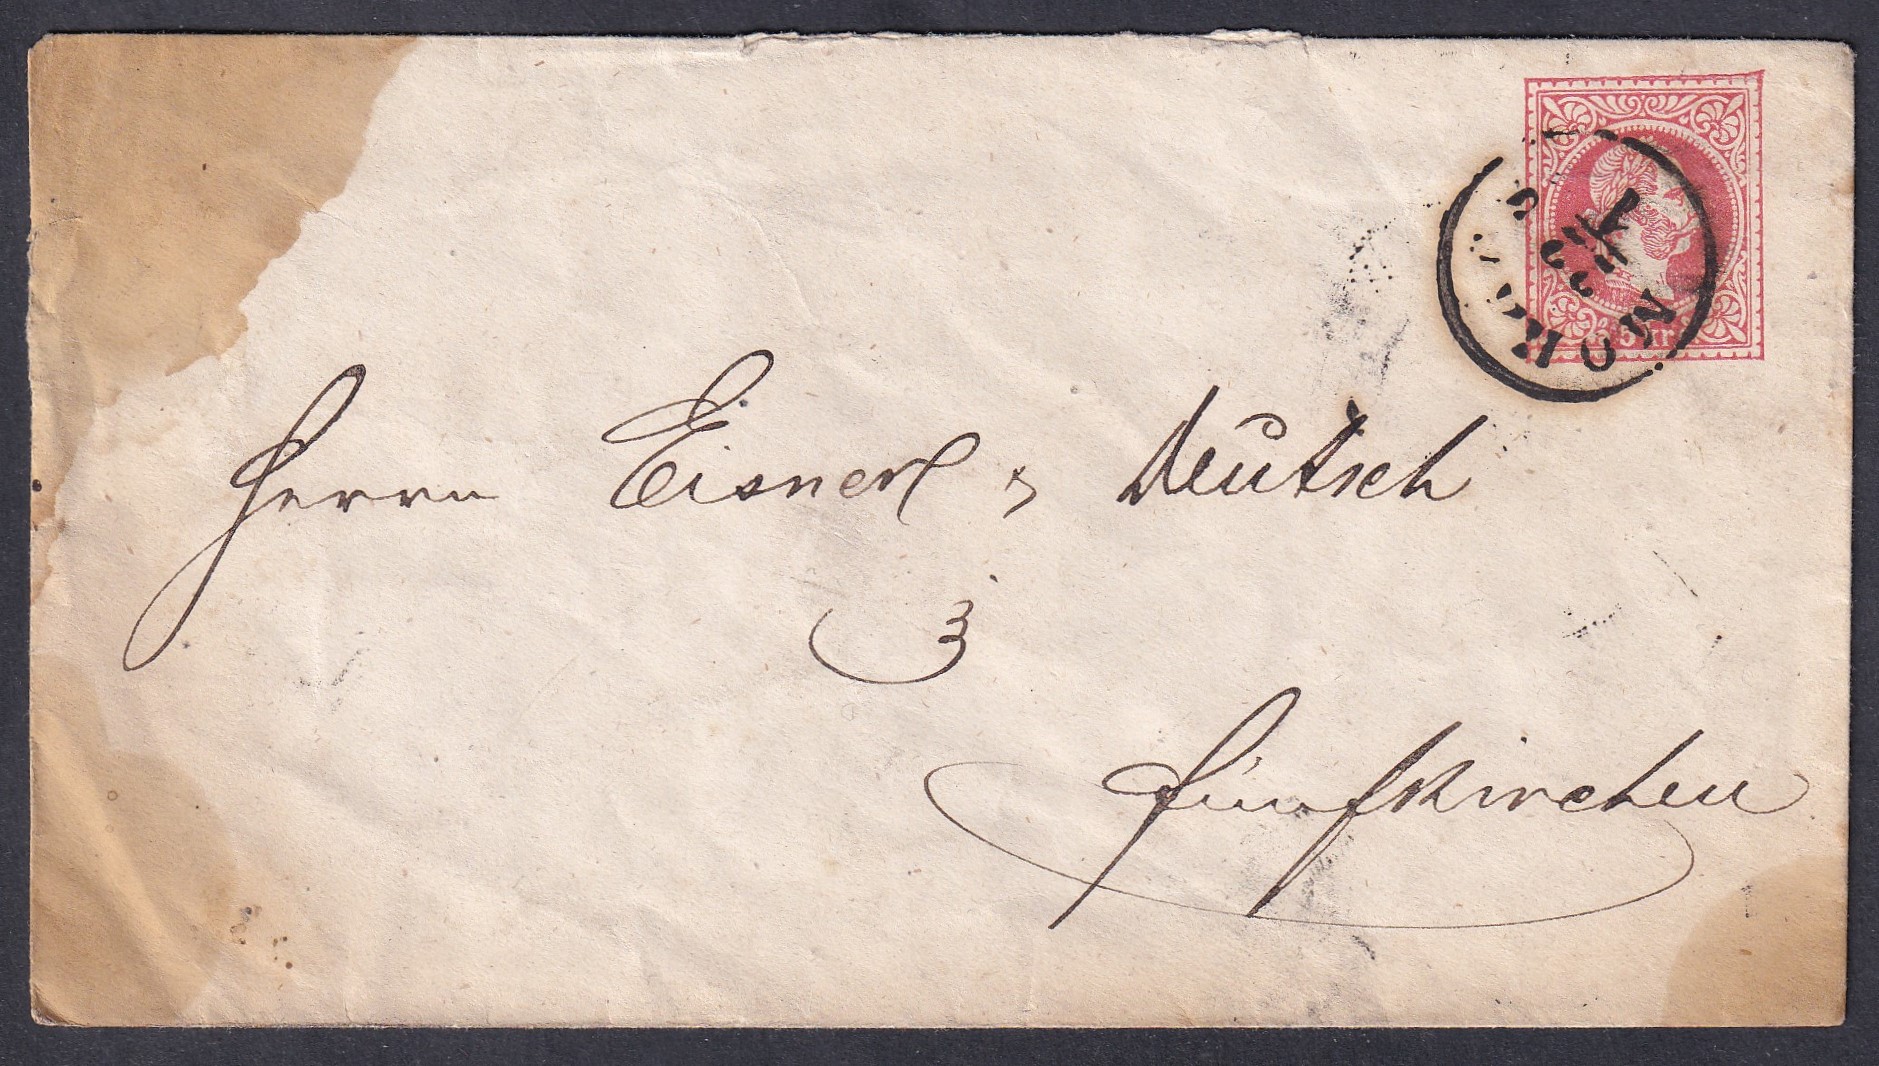 5 kr
MOHÁCS
Herrn Eisner & Deutsch
Fünfkirchen